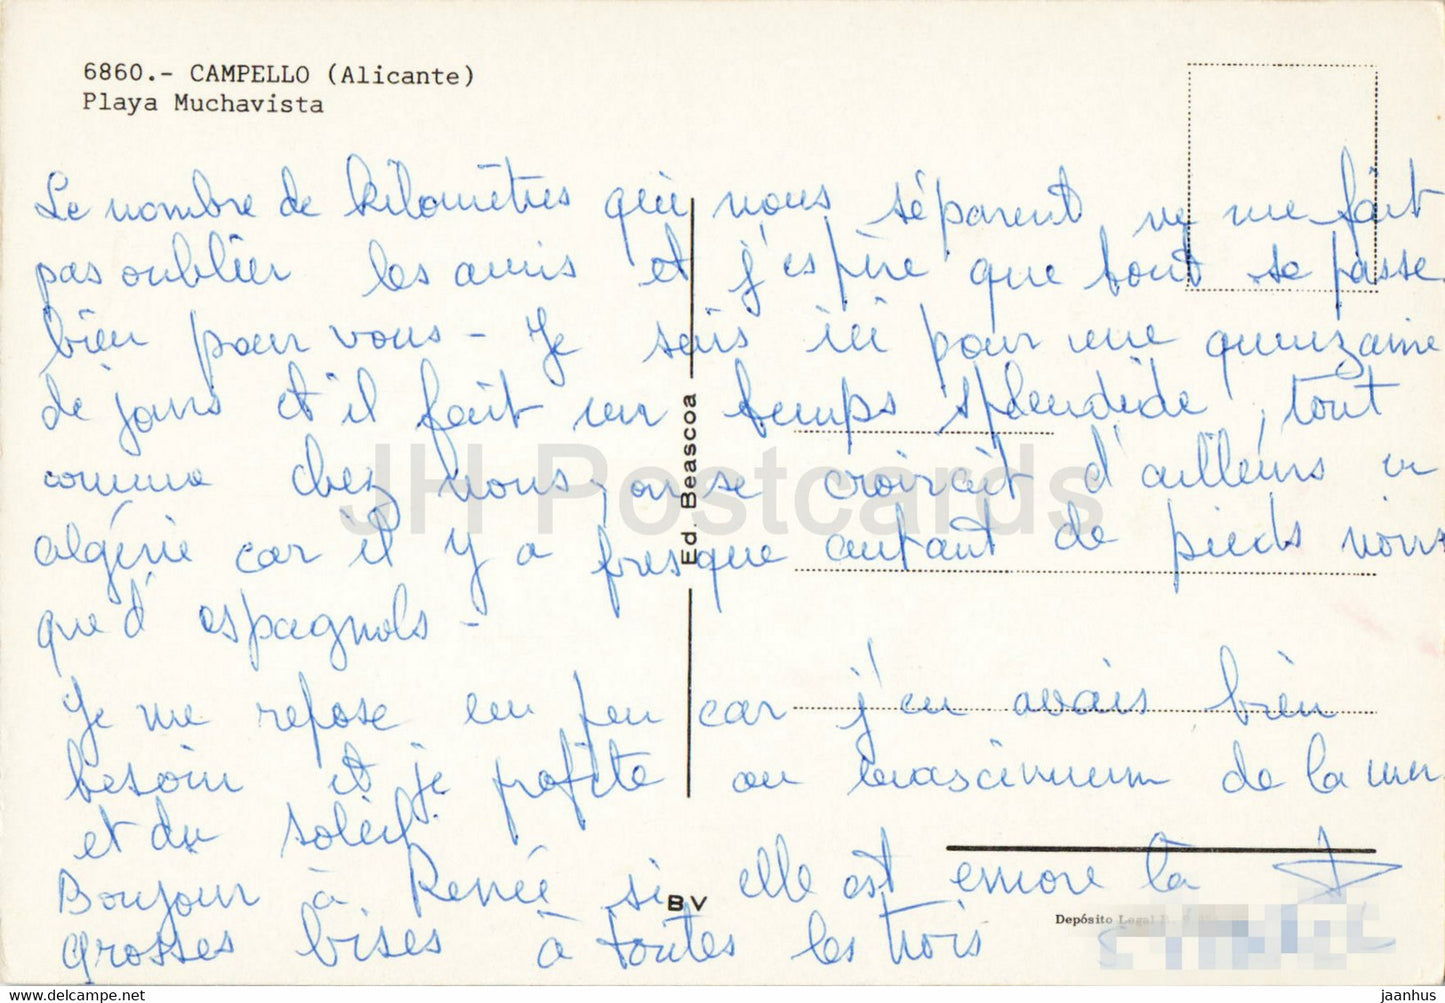 6860.- CAMPELLO (Alicante)
Playa Muchavista
Le nombre de kilomètres qui nous séparent ne me fait
pas oublier les amis et j'espère que tout se passe
bien pour vous - Je suis ici pour une quinzaine
de jours et il fait un temps splendide, tout
comme chez nous, on se croirait d'ailleurs en
algérie car il y a presque autant de pieds noirs
que d'espagnols -
Je me repose un peu car j'en avais bien
besoin et je profite au maximum de la mer
et du soleil.
Bonjour à Renée si elle est encore là
grosses bises à toutes les trois
Ed. Beascoa
BV
Depósito Legal
JH Postcards
https://www.akpool.co.uk
jaanhus